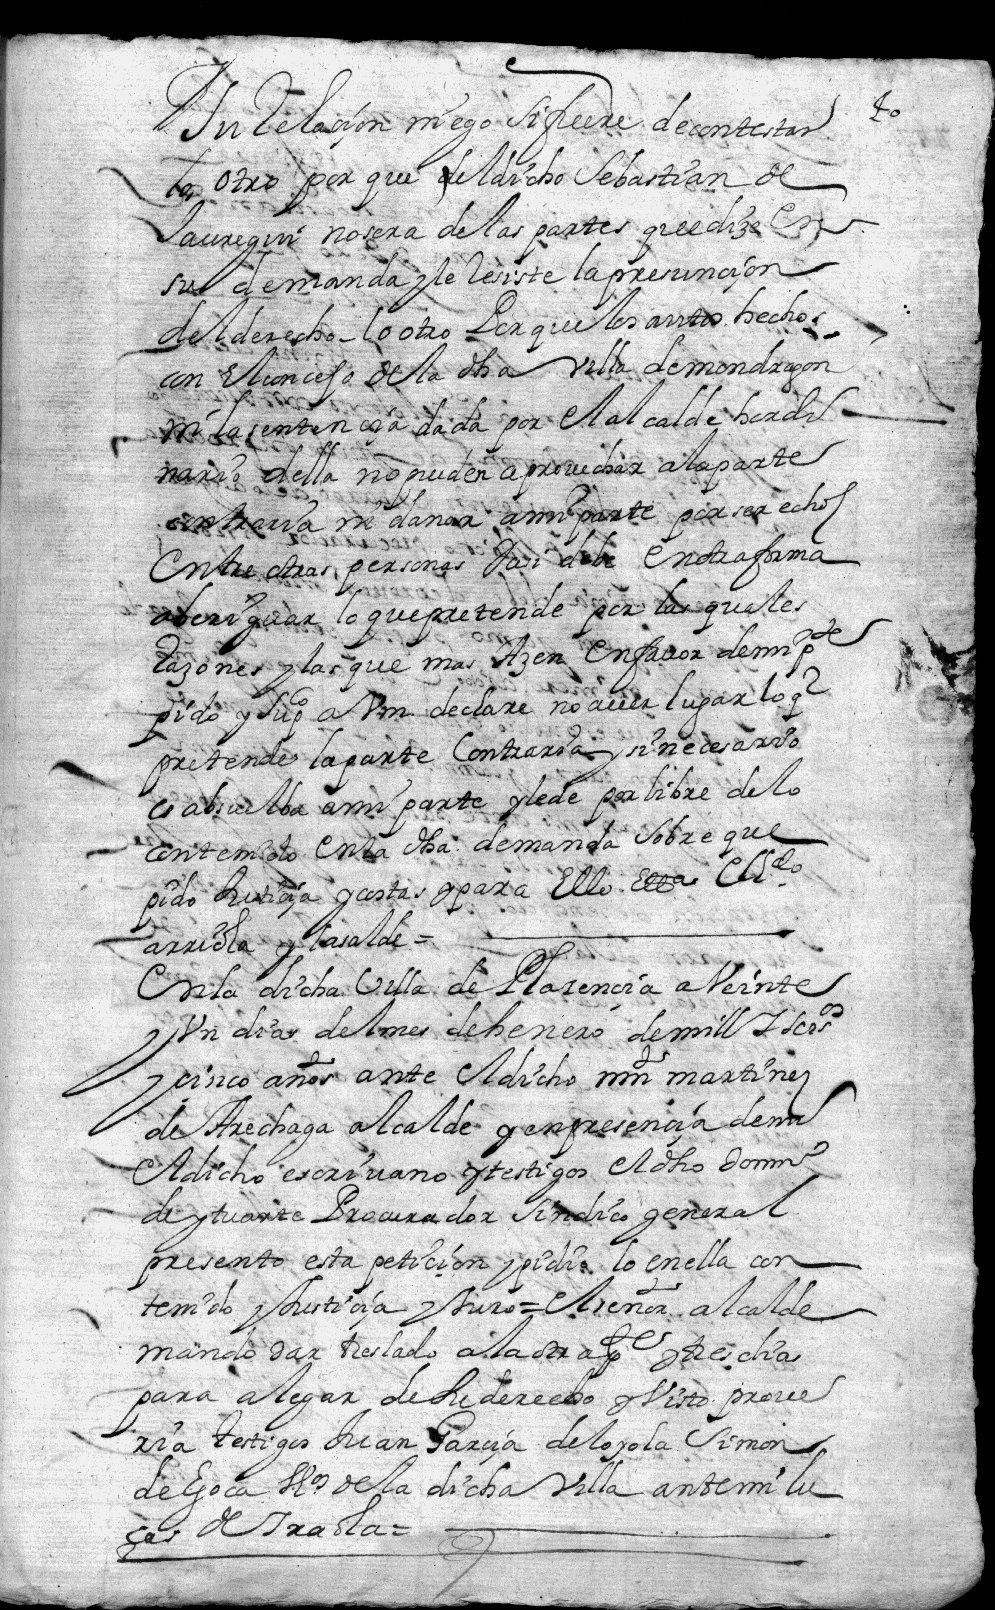 40
Su Relaçion niego si fuere de contestar
lo otro por que el dicho Sebastian de
Jauregui no sera de las partes que dize En
su demanda y le Resiste la presunçion
del derecho - lo otro Porque los autos hechos
con El conçejo de la dha villa de mondragon
ni la sentençia dada por El alcalde hordi
nario della no pueden aprouechar a la parte
contraria ni dañar a mi parte por ser echos
Entre otras personas y asi debe En otra forma
aberiguar lo que pretende por las quales
Razones y las que mas hazen En fauor de mi pte
pido y supco a Vm declare no auer lugar lo q
pretende la parte Contraria y si necesario
es absuelba a mi parte y le de por libre de lo
contenido En la dha demanda sobre que
pido Justiçia y costas y para Ello El liçdo
arriola y lasalde =
En la dicha Villa de Plazençia a Veinte
y Vn dias del mes de henero de mill y seisos
y çinco años ante El dicho mnn martinez
de Arechaga alcalde y en presençia de mi
El dicho escriuano y testigos El dho domo
de ytuarte Procurador sindico general
presento esta petiçion y pidio lo en ella con
tenido y Justiçia y Juro = El señor alcalde
mando dar treslado a la otra pte y tres dias
para alegar de su derecho y Visto probe
ria testigos Juan Garçia de loyola Simon
de Egoca Vos de la dicha Villa ante mi lu
cas de Yraola =